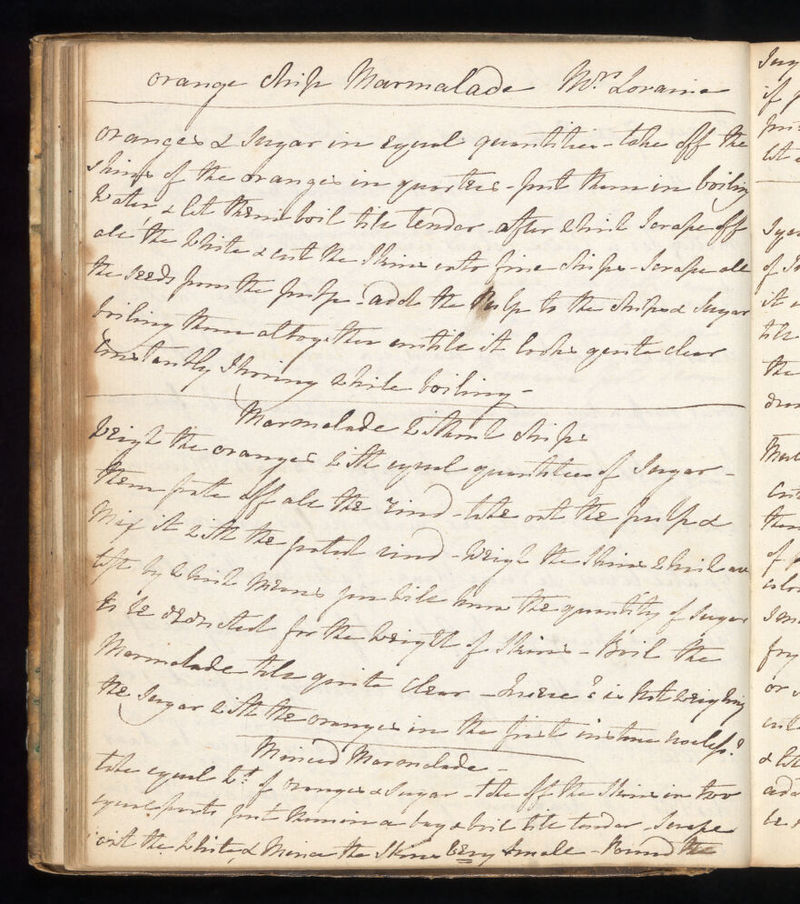 orange Chip Marmalade Mrs Loraine
oranges & Sugar in equal quantities - take off the
skins of the oranges in quarters - put them in boiling
Water, & let them boil till tender - after which Scrape off
all the White & cut the Skins into fine chips - Scrape all
the seeds from the pulp - add the Pulp to the chips & Sugar
boiling them altogether untill it looks quite clear
Constantly Stirring while boiling -
Marmalade without chips
Weigh the oranges with equal quantities of Sugar -
then grate off all the rind - take out the pulp &
Mix it with the grated rind - Weigh the Skins which are
left by which means you will know the quantity of Sugar
to be deducted for the weight of Skins - Boil the
Marmalade till quite clear - is not weighing
the Sugar with the oranges in the first instance useless?
Minced Marmalade -
take equal Wt. of oranges & Sugar - take off the Skins in two
equal parts put them in a bag & boil till tender - Scrape
out the White, & Mince the Skins very Small - Pound the
Sug
if
let
of
it
till
the
Cut
them
of
fry
or
& let
add
be